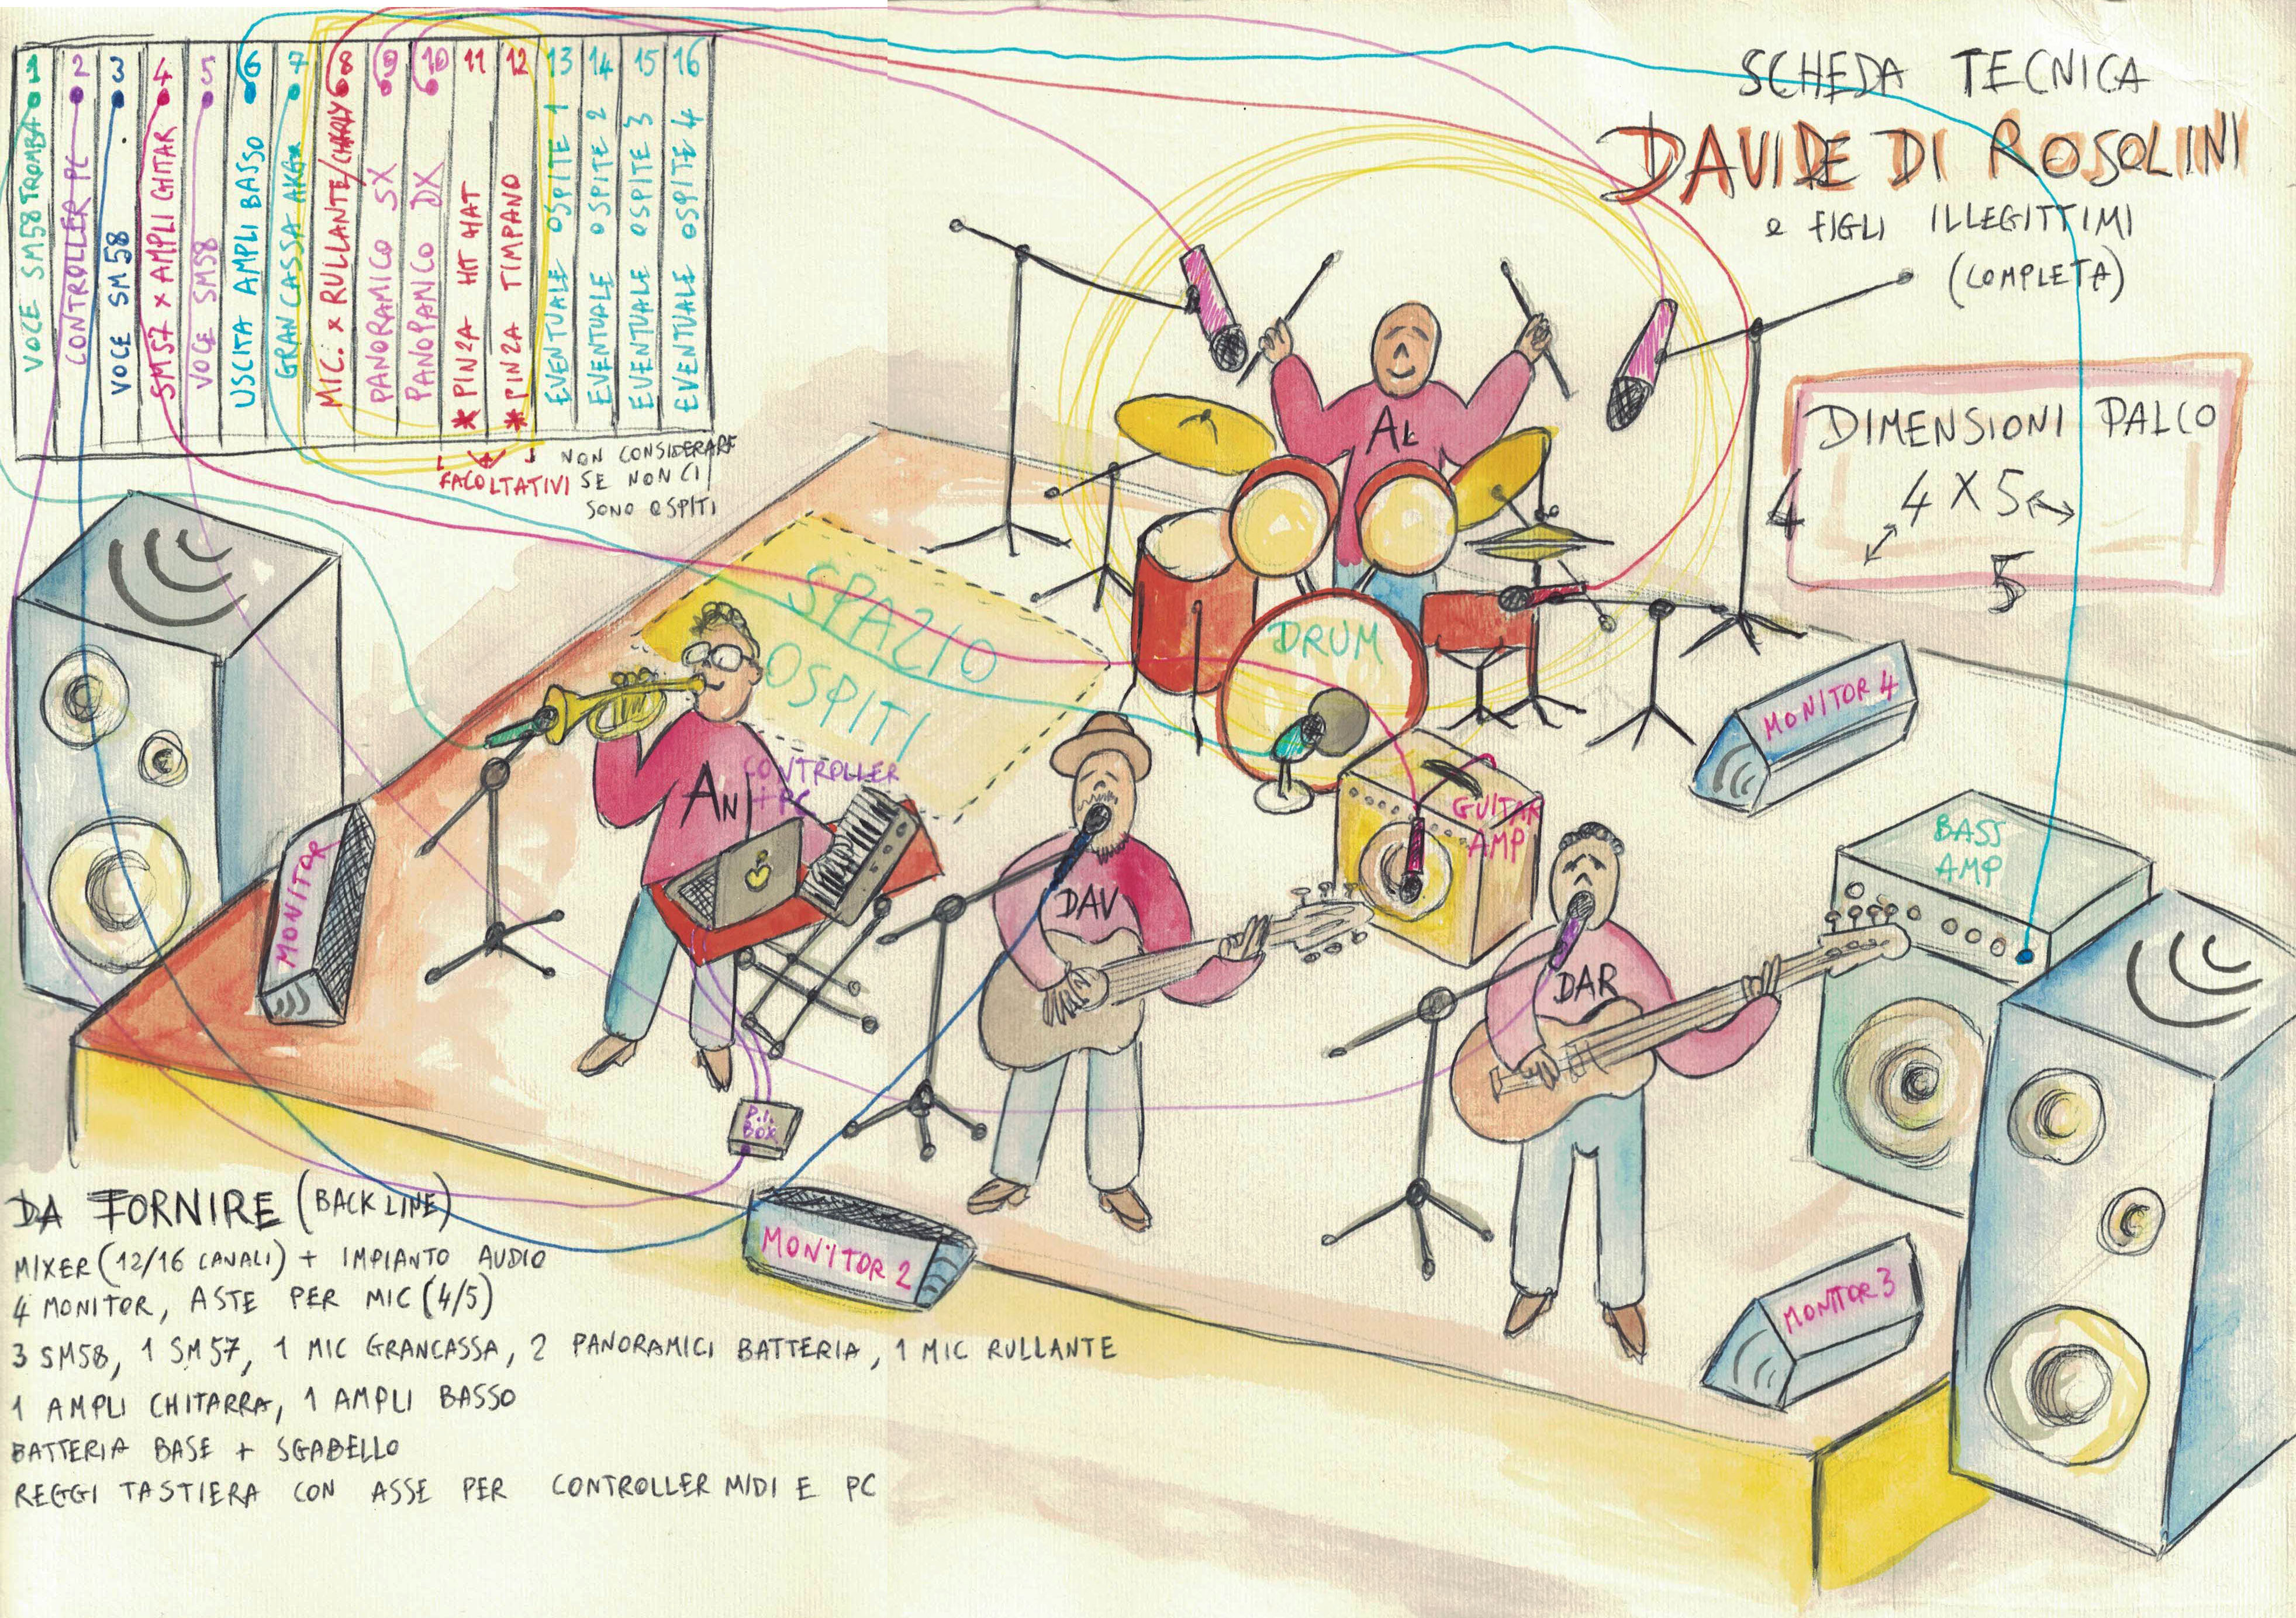 VOCE SM58 TROMBA 1
CONTROLLER PC 2
VOCE SM58 3
SM57 x AMPLI GHITAR 4
VOCE SM58 5
USCITA AMPLI BASSO 6
GRAN CASSA AKG 7
MIC. x RULLANTE/ 8
PANORAMICO SX 9
PANOPANICO DX 10
* PINZA HIT HAT 11
* PINZA TIMPANO 12
EVENTUALE OSPITE 1 13
EVENTUALE OSPITE 2 14
EVENTUALE OSPITE 3 15
EVENTUALE OSPITE 4 16
FACOLTATIVI
NON CONSIDERARE
SE NON CI
SONO OSPITI
SCHEDA TECNICA
DAVIDE DI ROSOLINI
e FIGLI ILLEGITTIMI
(COMPLETA)
DIMENSIONI PALCO
4 4 X 5
5
SPAZIO
OSPITI
AL
DRUM
MONITOR 4
AN
CONTROLLER
+ PC
MONITOR
DAV
GUITAR
AMP
BASS
AMP
DAR
D.I.
BOX
MONITOR 2
MONITOR 3
DA FORNIRE (BACK LINE)
MIXER (12/16 CANALI) + IMPIANTO AUDIO
4 MONITOR, ASTE PER MIC (4/5)
3 SM58, 1 SM57, 1 MIC GRANCASSA, 2 PANORAMICI BATTERIA, 1 MIC RULLANTE
1 AMPLI CHITARRA, 1 AMPLI BASSO
BATTERIA BASE + SGABELLO
REGGI TASTIERA CON ASSE PER CONTROLLER MIDI E PC